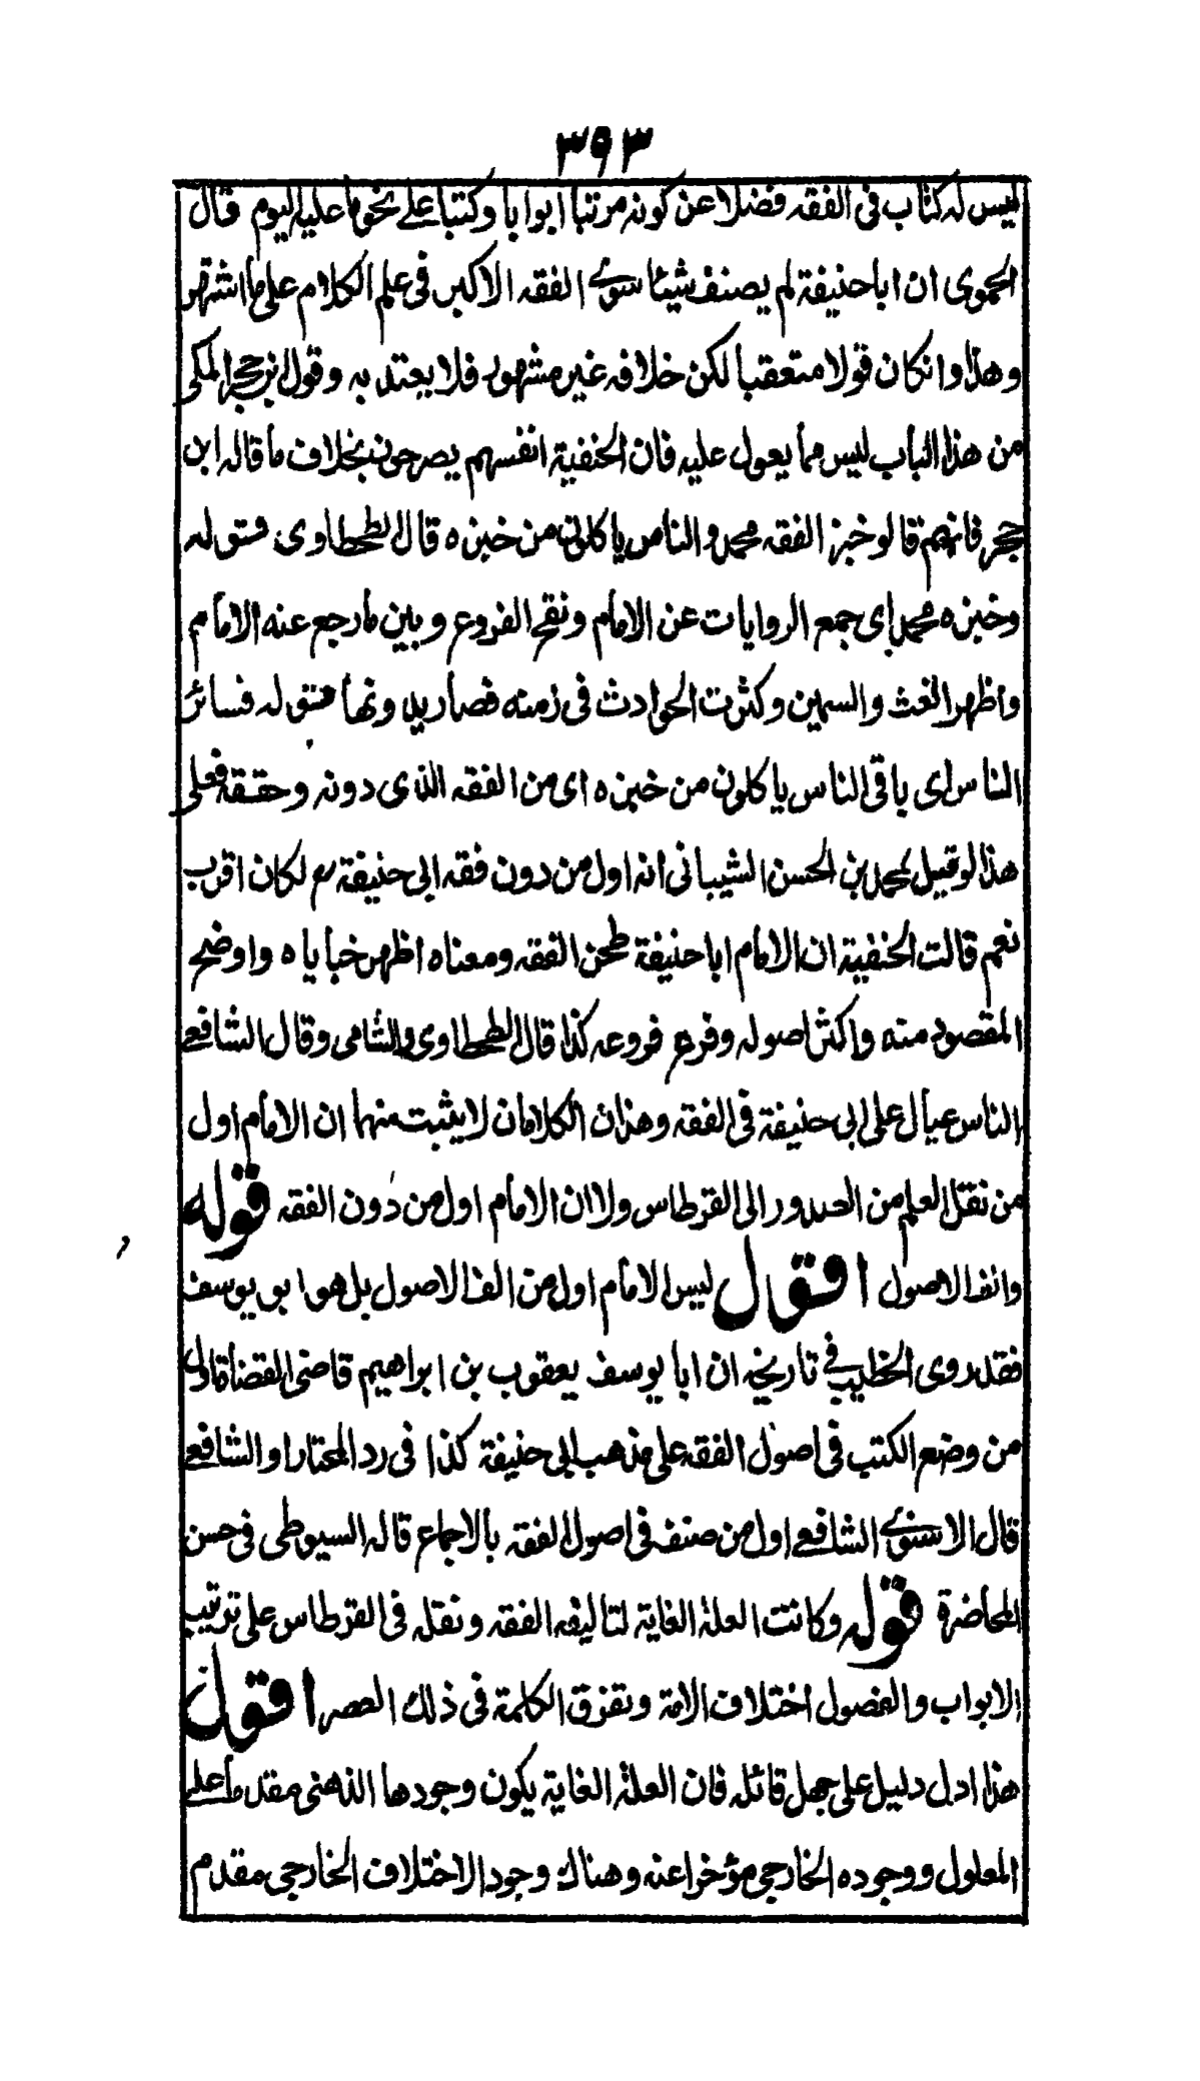 ٣٩٣
ليس له كتاب فى الفقه فضلا عن كونه مرتبا ابوابا وكتبا على نحو ما عليه اليوم قال
الحموى ان ابا حنيفة لم يصنف شيئا سوى الفقه الاكبر فى علم الكلام على ما اشتهر
وهذا وانكان قولا متعقبا لكن خلافه غير مشهور فلا يعتد به وقول ابن حجر المكى
من هذا الباب ليس مما يعول عليه فان الحنفية انفسهم يصرحون بخلاف ما قاله ابن
حجر فانهم قالو خبز الفقه محمد والناس ياكلون من خبزه قال الطحطاوى فقوله
وخبزه محمد اى جمع الروايات عن الامام ونقح الفروع وبين ما رجع عنه الامام
واظهر الغث والسمين وكثرت الحوادث فى زمنه فصار يدونها فقوله فسائر
الناس اى باقى الناس ياكلون من خبزه اى من الفقه الذى دونه وحققه فعلى
هذا لو قيل لمحمد بن الحسن الشيبانى انه اول من دون فقه ابى حنيفة رح لكان اقرب
نعم قالت الحنفية ان الامام ابا حنيفة طحن الفقه ومعناه اظهر خباياه واوضح
المقصود منه واكثر اصوله وفرع فروعه كذا قال الطحطاوى والشامى وقال الشافعى
الناس عيال على ابى حنيفة فى الفقه وهذان الكلامان لا يثبت منهما ان الامام اول
من نقل العلم من الصدور الى القرطاس ولا ان الامام اول من دون الفقه قوله
والف الاصول اقول ليس الامام اول من الف الاصول بل هو ابو يوسف
فقد روى الخطيب فى تاريخه ان ابا يوسف يعقوب بن ابراهيم قاضى القضاة اول
من وضع الكتب فى اصول الفقه على مذهب ابى حنيفة كذا فى رد المحتار او الشافعى
قال الاسنوى الشافعى اول من صنف فى اصول الفقه بالاجماع قاله السيوطى فى حسن
المحاضرة قوله وكانت العلة الغاية لتاليفه الفقه ونقله فى القرطاس على ترتيب
الابواب والفصول اختلاف الامة وتفرق الكلمة فى ذلك العصر اقول
هذا ادل دليل على جهل قائله فان العلة الغاية يكون وجودها الذهنى مقدما على
المعلول ووجوده الخارجى مؤخرا عنه وهناك وجود الاختلاف الخارجى مقدم